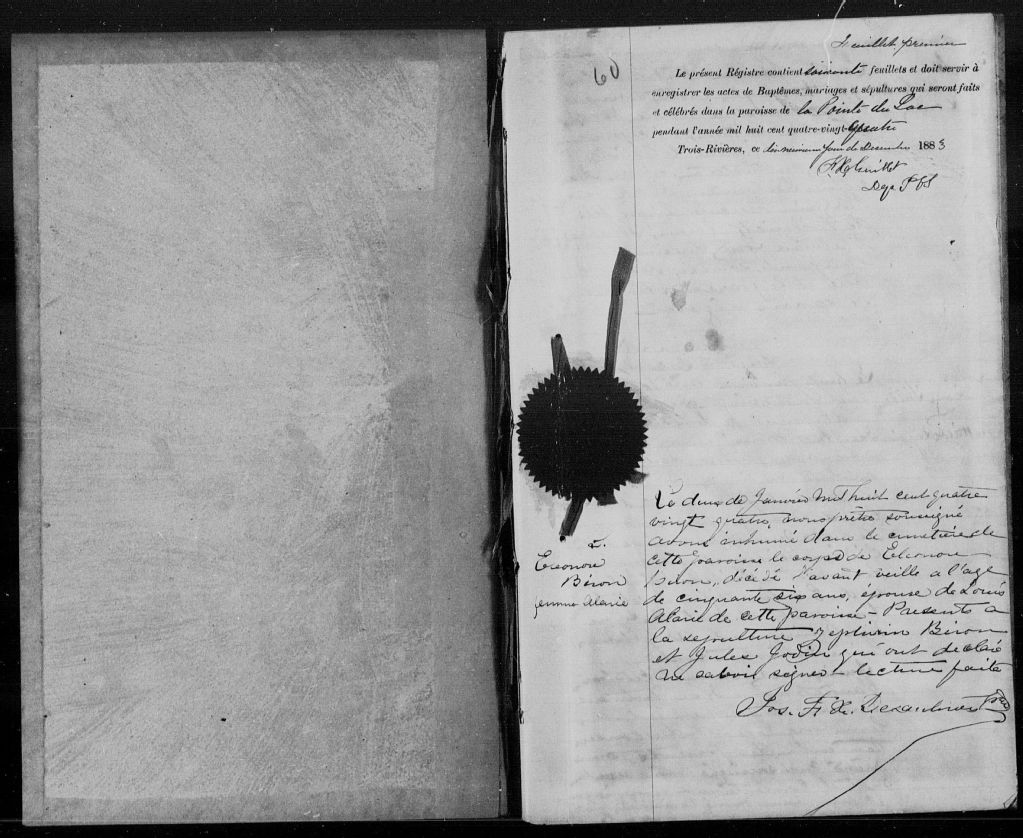 Feuillet premier
60
Le présent Régistre contient soixante feuillets et doit servir à
enregistrer les actes de Baptêmes, mariages et sépultures qui seront faits
et célébrés dans la paroisse de la Pointe du Lac
pendant l'année mil huit cent quatre-vingt-quatre
Trois-Rivières, ce jour de Decembre 1883
Dep P C S
Eleonore
Béron
femme Alarie
Le deux de Janvier mil huit cent quatre
vingt quatre, nous prêtre soussigné
avons inhumé dans le cimetière de
cette paroisse le corps de Eleonore
Béron, décédé l'avant veille a l'age
de cinquante six ans, épouse de Louis
Alarie de cette paroisse - Presents a
la sepulture Zephirin Béron
et Jules Godin qui ont declaré
ne savoir signer - lecture faite
Jos. F. X. Desaulniers Ptre